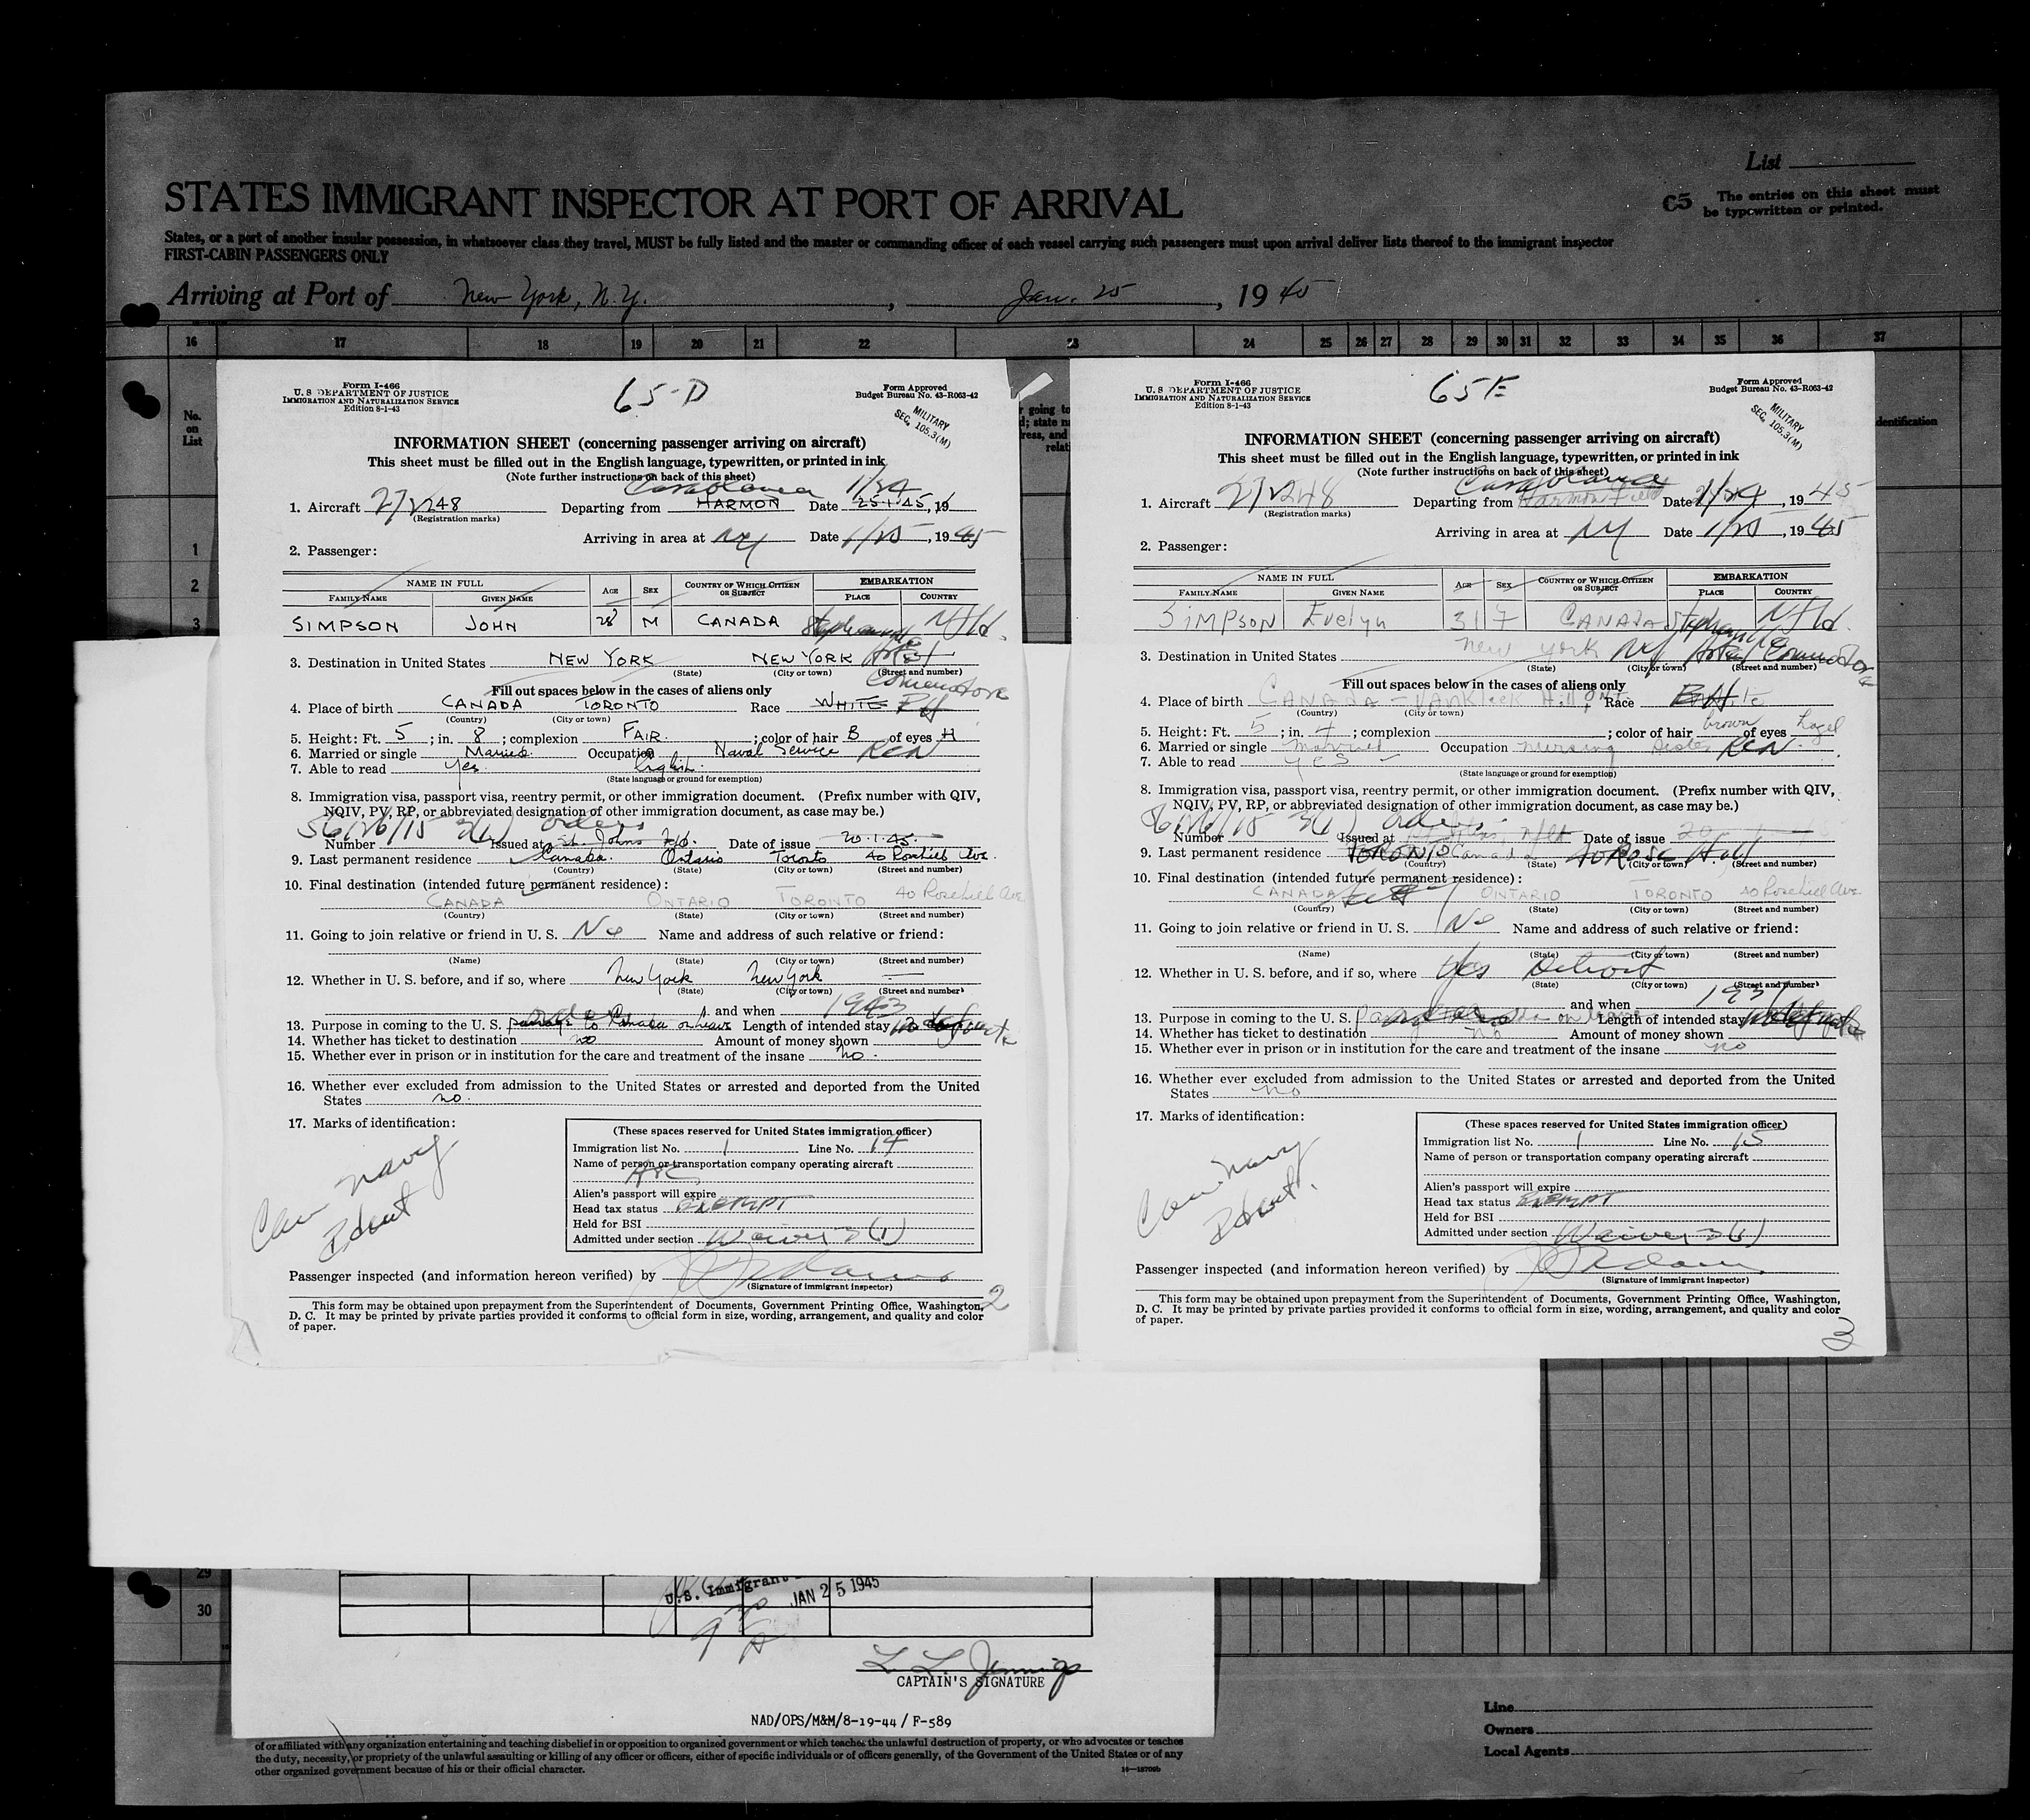 List
STATES IMMIGRANT INSPECTOR AT PORT OF ARRIVAL
C5 The entries on this sheet must
be typewritten or printed.
States, or a port of another insular possession, in whatsoever class they travel, MUST be fully listed and the master or commanding officer of each vessel carrying such passengers must upon arrival deliver lists thereof to the immigrant inspector
FIRST-CABIN PASSENGERS ONLY
Arriving at Port of New York, N.Y. , Jan. 25 , 1945
16 17 18 19 20 21 22 23 24 25 26 27 28 29 30 31 32 33 34 35 36 37
No.
on
List
1
2
3
Form I-466
U. S DEPARTMENT OF JUSTICE
IMMIGRATION AND NATURALIZATION SERVICE
Edition 8-1-43
65-D
Form Approved
Budget Bureau No. 43-R063-42
MILITARY
SEC. 105.3(M)
INFORMATION SHEET (concerning passenger arriving on aircraft)
This sheet must be filled out in the English language, typewritten, or printed in ink
(Note further instructions on back of this sheet)
Casablanca 1/24
1. Aircraft 272248 Departing from HARMON Date 25·1·45, 19
(Registration marks)
Arriving in area at NY Date 1/25, 1945
2. Passenger:
NAME IN FULL AGE SEX COUNTRY OF WHICH CITIZEN OR SUBJECT EMBARKATION
FAMILY NAME GIVEN NAME PLACE COUNTRY
SIMPSON JOHN 28 M CANADA Stephenville Nfld.
3. Destination in United States NEW YORK NEW YORK Hotel
(State) (City or town) (Street and number)
Commodore
Fill out spaces below in the cases of aliens only
4. Place of birth CANADA TORONTO Race WHITE
(Country) (City or town)
5. Height: Ft. 5 ; in. 8 ; complexion FAIR. ; color of hair B of eyes H
6. Married or single Married Occupation Naval Service RCN
7. Able to read Yes. English.
(State language or ground for exemption)
8. Immigration visa, passport visa, reentry permit, or other immigration document. (Prefix number with QIV,
NQIV, PV, RP, or abbreviated designation of other immigration document, as case may be.)
56126/15 3(1) orders
Number Issued at St. Johns Nfld. Date of issue 20·1·45.
9. Last permanent residence Canada. Ontario Toronto 40 Rosehill Ave.
(Country) (State) (City or town) (Street and number)
10. Final destination (intended future permanent residence):
CANADA ONTARIO TORONTO 40 Rosehill Ave.
(Country) (State) (City or town) (Street and number)
11. Going to join relative or friend in U. S. No Name and address of such relative or friend:
(Name) (State) (City or town) (Street and number)
12. Whether in U. S. before, and if so, where New York New York
(State) (City or town) (Street and number)
and when 1943
13. Purpose in coming to the U. S. passage to Canada on leave Length of intended stay
14. Whether has ticket to destination no Amount of money shown
15. Whether ever in prison or in institution for the care and treatment of the insane no.
16. Whether ever excluded from admission to the United States or arrested and deported from the United
States no.
17. Marks of identification:
Can navy
Ident
(These spaces reserved for United States immigration officer)
Immigration list No. 1 Line No. 14
Name of person or transportation company operating aircraft
ATC
Alien's passport will expire
Head tax status EXEMPT
Held for BSI
Admitted under section Waiver 3(1)
Passenger inspected (and information hereon verified) by
(Signature of immigrant inspector)
This form may be obtained upon prepayment from the Superintendent of Documents, Government Printing Office, Washington,
D. C. It may be printed by private parties provided it conforms to official form in size, wording, arrangement, and quality and color
of paper.
2
Form I-466
U. S DEPARTMENT OF JUSTICE
IMMIGRATION AND NATURALIZATION SERVICE
Edition 8-1-43
65E
Form Approved
Budget Bureau No. 43-R063-42
MILITARY
SEC. 105.3(M)
INFORMATION SHEET (concerning passenger arriving on aircraft)
This sheet must be filled out in the English language, typewritten, or printed in ink
(Note further instructions on back of this sheet)
Casablanca
1. Aircraft 272248 Departing from Harmon Field Date 1/24, 1945
(Registration marks)
Arriving in area at NY Date 1/25, 1945
2. Passenger:
NAME IN FULL AGE SEX COUNTRY OF WHICH CITIZEN OR SUBJECT EMBARKATION
FAMILY NAME GIVEN NAME PLACE COUNTRY
SIMPSON Evelyn 31 F CANADA Stephenville Nfld.
3. Destination in United States new york NY Hotel Commodore
(State) (City or town) (Street and number)
Fill out spaces below in the cases of aliens only
4. Place of birth CANADA - VANKleek Hill, Ont. Race
(Country) (City or town)
5. Height: Ft. 5 ; in. 4 ; complexion ; color of hair brown of eyes hazel
6. Married or single married Occupation nursing sister RCN
7. Able to read yes
(State language or ground for exemption)
8. Immigration visa, passport visa, reentry permit, or other immigration document. (Prefix number with QIV,
NQIV, PV, RP, or abbreviated designation of other immigration document, as case may be.)
56126/15 3(1) orders
Number Issued at Date of issue
9. Last permanent residence TORONTO Canada 40 Rose Hill
(Country) (State) (City or town) (Street and number)
10. Final destination (intended future permanent residence):
CANADA ONTARIO TORONTO 40 Rosehill Ave.
(Country) (State) (City or town) (Street and number)
11. Going to join relative or friend in U. S. No Name and address of such relative or friend:
(Name) (State) (City or town) (Street and number)
12. Whether in U. S. before, and if so, where Yes Detroit
(State) (City or town) (Street and number)
and when
13. Purpose in coming to the U. S. on leave Length of intended stay
14. Whether has ticket to destination no Amount of money shown
15. Whether ever in prison or in institution for the care and treatment of the insane no
16. Whether ever excluded from admission to the United States or arrested and deported from the United
States no
17. Marks of identification:
Can. navy
Ident.
(These spaces reserved for United States immigration officer)
Immigration list No. 1 Line No. 15
Name of person or transportation company operating aircraft
Alien's passport will expire
Head tax status EXEMPT
Held for BSI
Admitted under section Waiver 3(1)
Passenger inspected (and information hereon verified) by
(Signature of immigrant inspector)
This form may be obtained upon prepayment from the Superintendent of Documents, Government Printing Office, Washington,
D. C. It may be printed by private parties provided it conforms to official form in size, wording, arrangement, and quality and color
of paper.
3
29
30
U.S. Immigrant
JAN 25 1945
L L Jennings
CAPTAIN'S SIGNATURE
NAD/OPS/M&M/8-19-44 / F-589
Line
Owners
Local Agents
of or affiliated with any organization entertaining and teaching disbelief in or opposition to organized government or which teaches the unlawful destruction of property, or who advocates or teaches
the duty, necessity, or propriety of the unlawful assaulting or killing of any officer or officers, either of specific individuals or of officers generally, of the Government of the United States or of any
other organized government because of his or their official character.
16—18700b